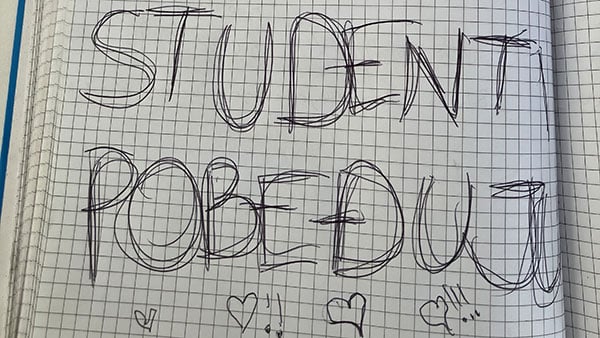 STUDENTI
POBEĐUJU
!!
!!!